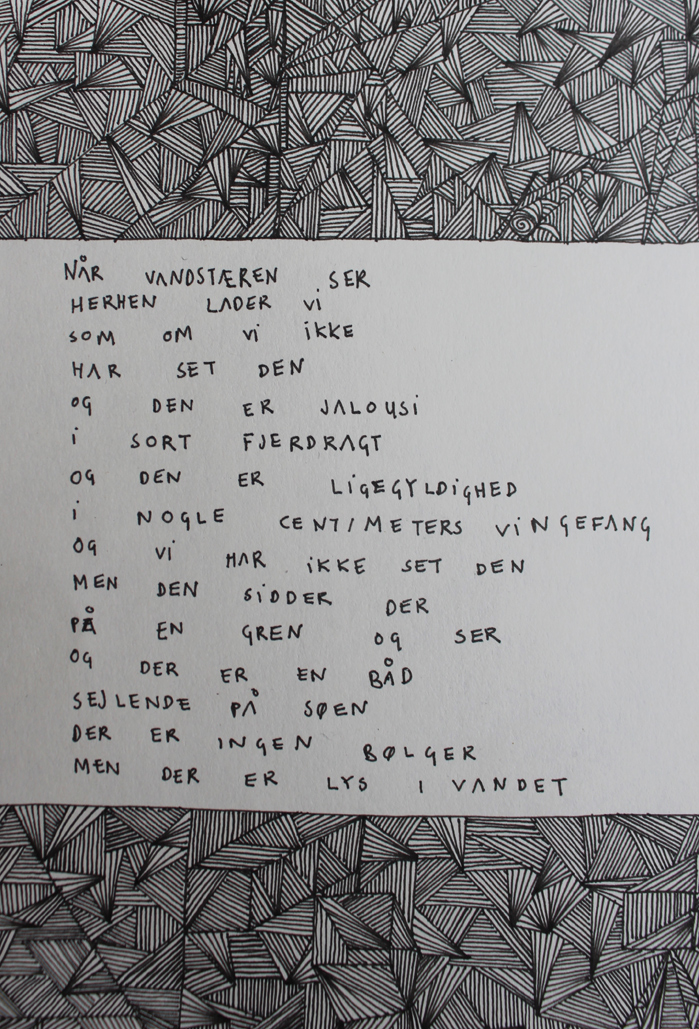 NÅR VANDSTÆREN SER
HERHEN LADER Vi
SOM OM Vi iKKE
HAR SET DEN
OG DEN ER JALOUSi
i SORT FJERDRAGT
OG DEN ER LiGEGYLDiGHED
i NOGLE CENTIMETERS ViNGEFANG
OG Vi HAR iKKE SET DEN
MEN DEN SiDDER DER
PÅ EN GREN OG SER
OG DER ER EN BÅD
SEJLENDE PÅ SØEN
DER ER INGEN BØLGER
MEN DER ER LYS I VANDET